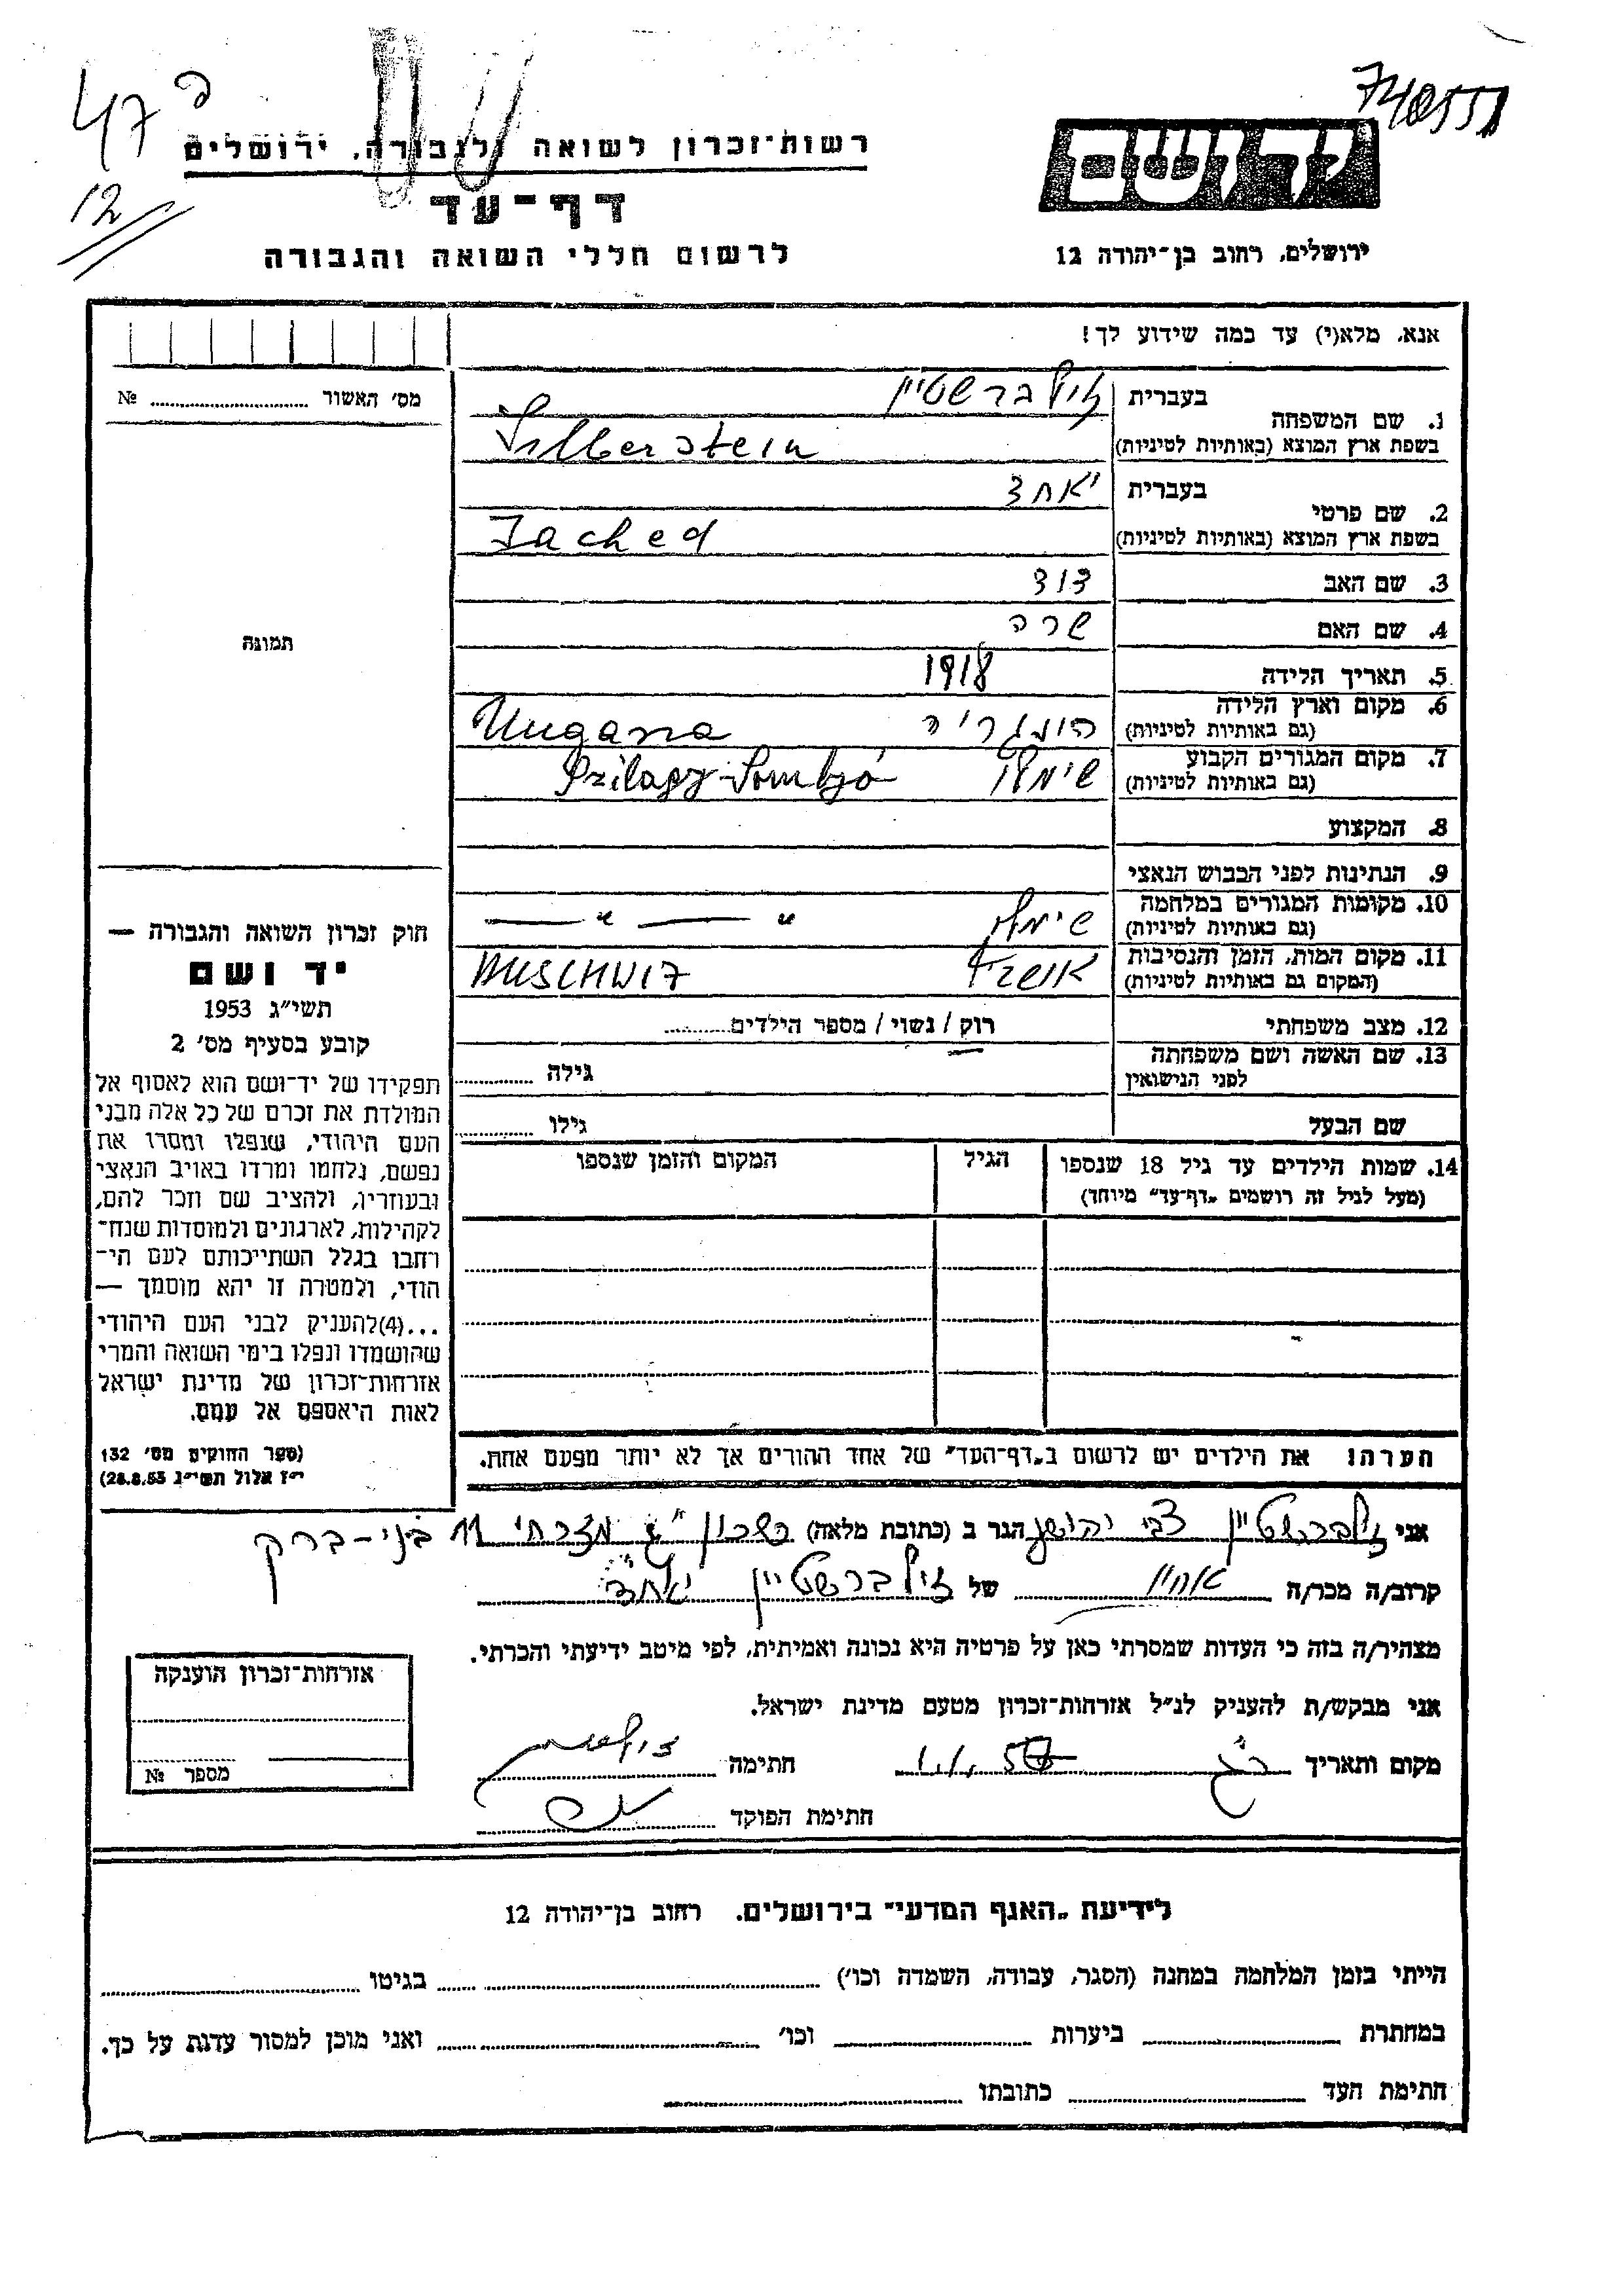 740551
47 פ
12
יד ושם
ירושלים, רחוב בן־יהודה 12
רשות־זכרון לשואה ולגבורה, ירושלים
דף־עד
לרשום חללי השואה והגבורה
אנא, מלא(י) עד כמה שידוע לך!
מס' האשור ............ №
תמונה
חוק זכרון השואה והגבורה —
יד ושם
תשי"ג 1953
קובע בסעיף מס' 2
תפקידו של יד־ושם הוא לאסוף אל
המולדת את זכרם של כל אלה מבני
העם היהודי, שנפלו ומסרו את
נפשם, נלחמו ומרדו באויב הנאצי
ובעוזריו, ולהציב שם וזכר להם,
לקהילות, לארגונים ולמוסדות שנח־
רחבו בגלל השתייכותם לעם הי־
הודי, ולמטרה זו יהא מוסמך —
...(4)להעניק לבני העם היהודי
שהושמדו ונפלו בימי השואה והמרי
אזרחות־זכרון של מדינת ישראל
לאות היאספם אל עמם.
(ספר החוקים מס' 132
י"ז אלול תשי"ג 28.8.53)
בעברית זילברשטיין
1. שם המשפחה
בשפת ארץ המוצא (באותיות לטיניות) Silberstein
בעברית יאחד
2. שם פרטי
בשפת ארץ המוצא (באותיות לטיניות) Jached
3. שם האב דוד
4. שם האם שרה
5. תאריך הלידה 1918
6. מקום וארץ הלידה הונגריה Ungaria
(גם באותיות לטיניות)
7. מקום המגורים הקבוע שימלוי Szilagy-Somlyó
(גם באותיות לטיניות)
8. המקצוע
9. הנתינות לפני הכבוש הנאצי
10. מקומות המגורים במלחמה שימלוי — " — " —
(גם באותיות לטיניות)
11. מקום המות, הזמן והנסיבות אושוויץ AUSCHWIZ
(המקום גם באותיות לטיניות)
12. מצב משפחתי רוק / נשוי / מספר הילדים............
13. שם האשה ושם משפחתה גילה ............
לפני הנישואין
שם הבעל גילו ............
14. שמות הילדים עד גיל 18 שנספו הגיל המקום והזמן שנספו
(מעל לגיל זה רושמים „דף־עד" מיוחד)
הערה: את הילדים יש לרשום ב„דף־העד" של אחד ההורים אך לא יותר מפעם אחת.
אני זילברשטיין צבי יהושע הגר ב (כתובת מלאה) מזרחי 11 בני-ברק
קרוב/ה מכר/ה אחיו של זילברשטיין יאחד
מצהיר/ה בזה כי העדות שמסרתי כאן על פרטיה היא נכונה ואמיתית, לפי מיטב ידיעתי והכרתי.
אני מבקש/ת להעניק לנ"ל אזרחות־זכרון מטעם מדינת ישראל.
מקום ותאריך חתימה
חתימת הפוקד
אזרחות־זכרון הוענקה
מספר №
לידיעת „האגף המדעי" בירושלים. רחוב בן־יהודה 12
הייתי בזמן המלחמה במחנה (הסגר, עבודה, השמדה וכו') ............ בגיטו ............
במחתרת ............ ביערות ............ וכו' ............ ואני מוכן למסור עדות על כך.
חתימת העד ............ כתובתו ............